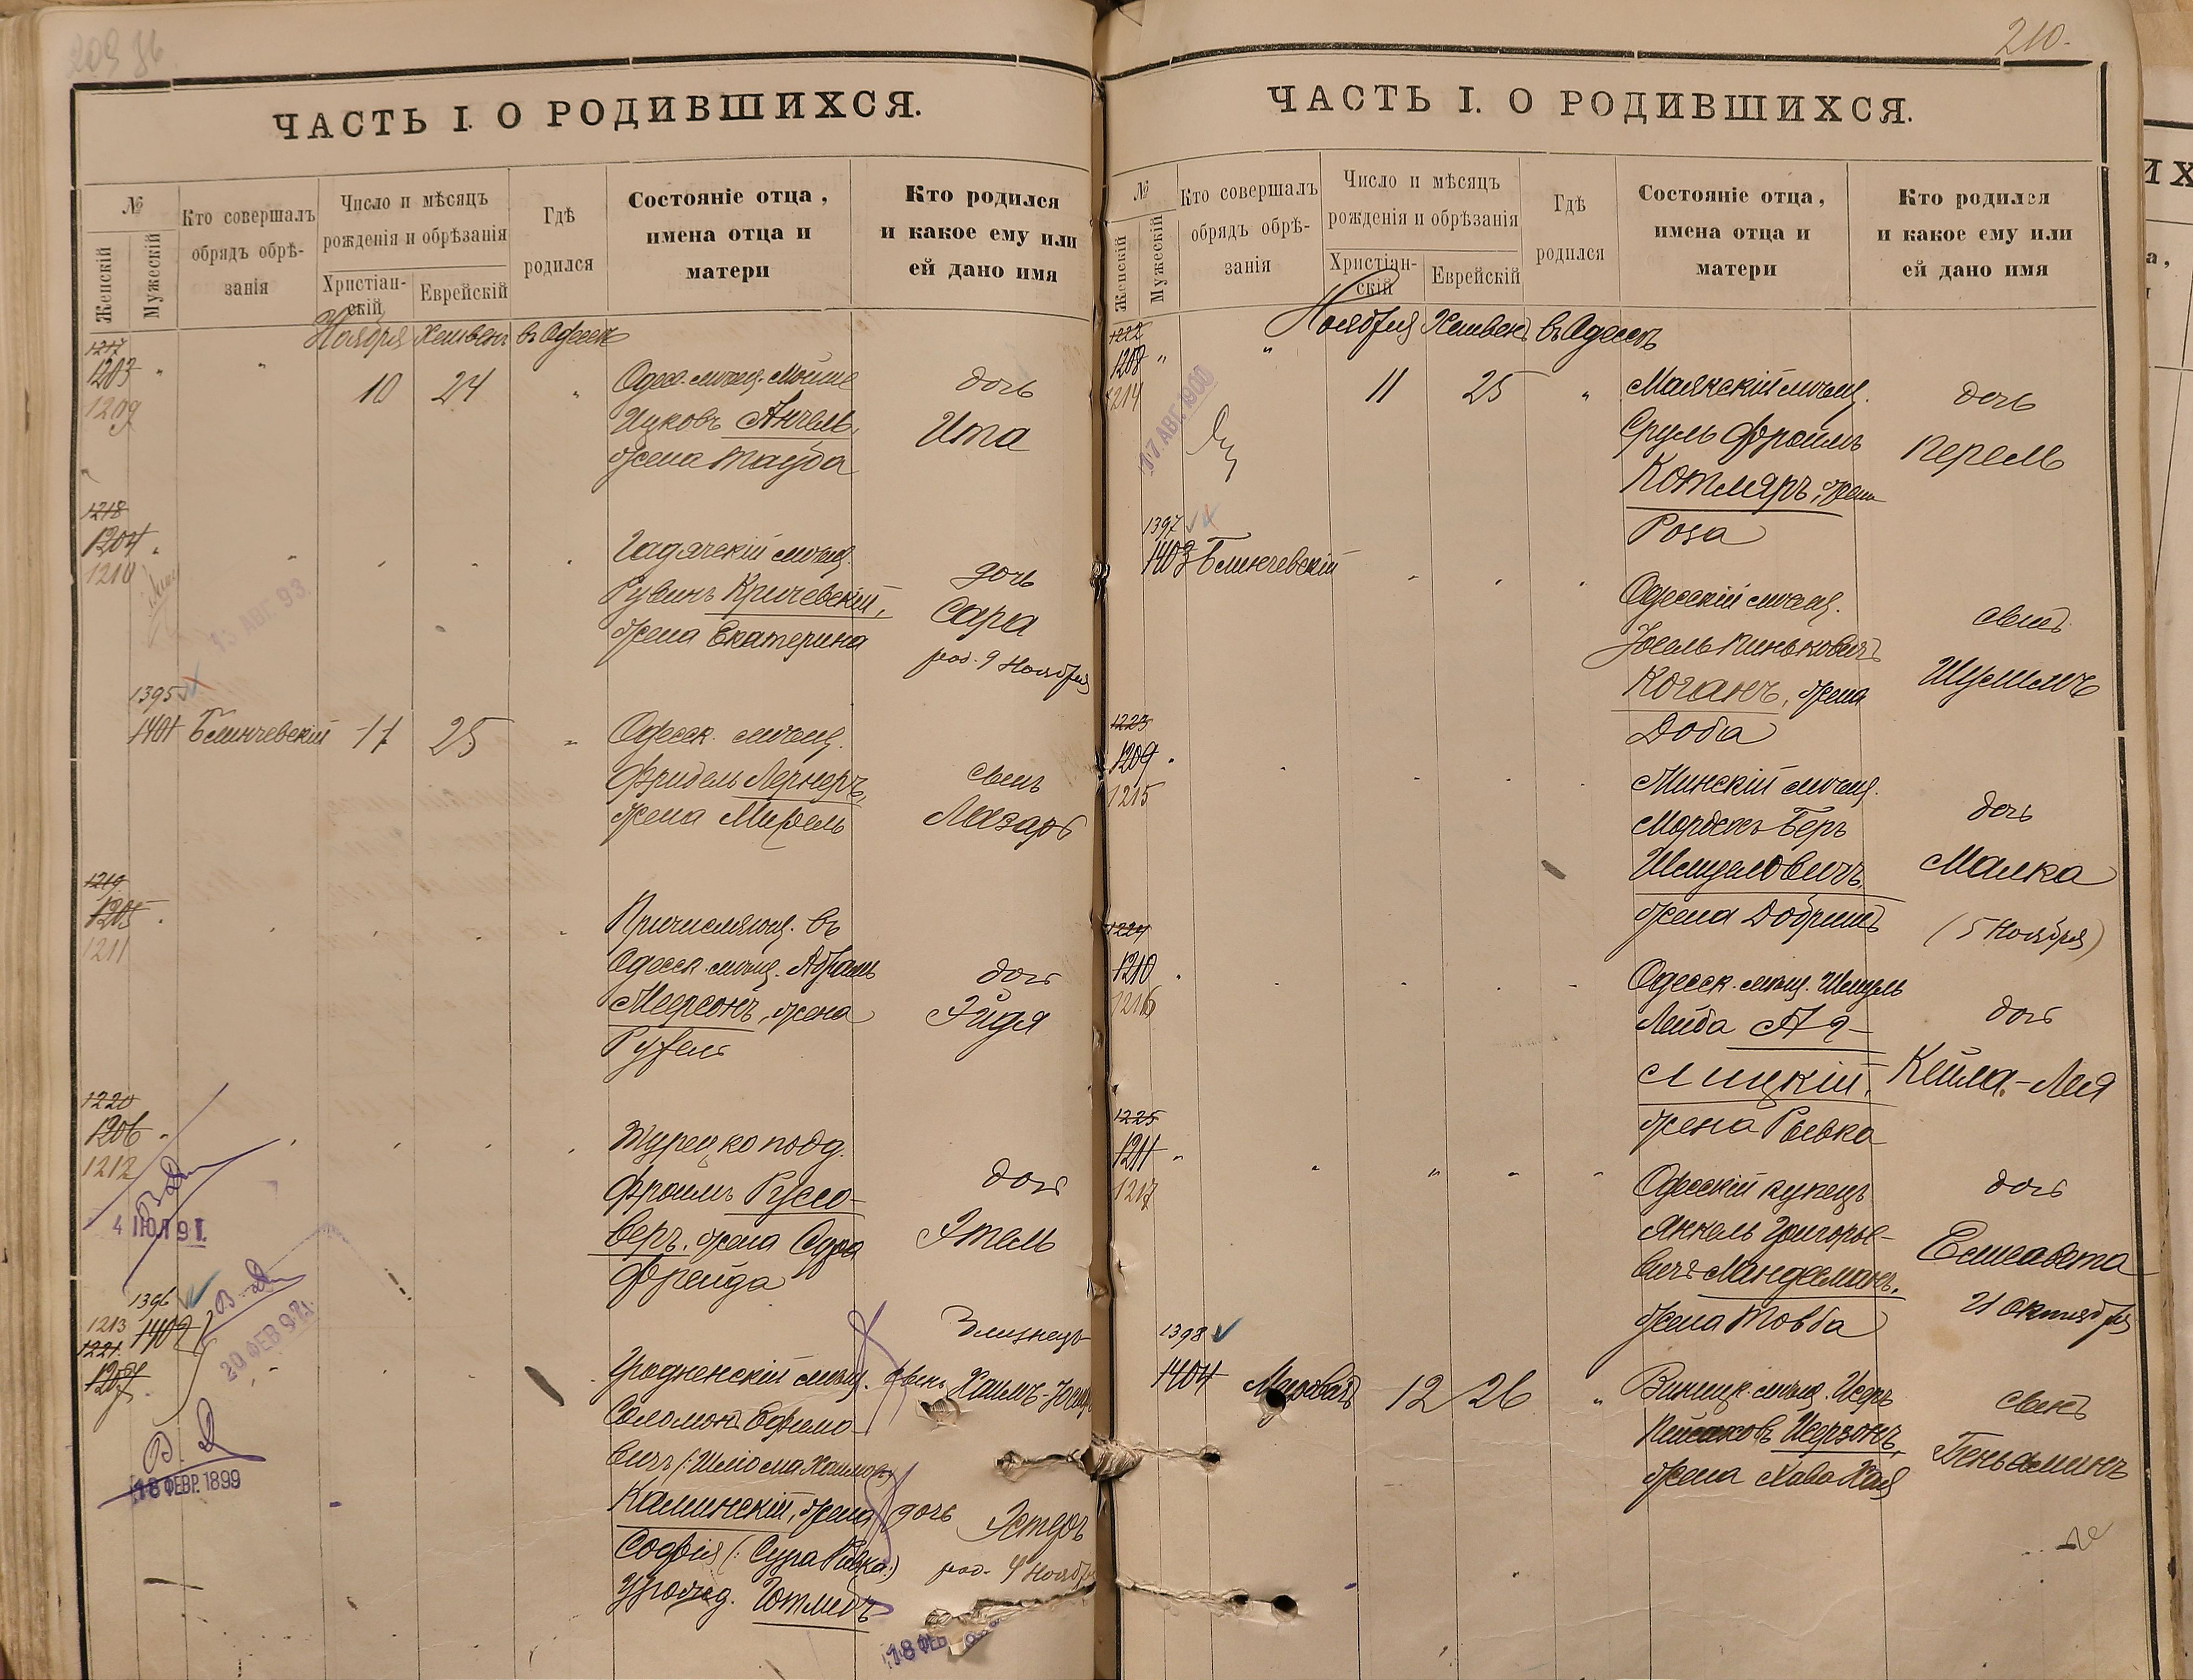 209
ЧАСТЬ I. О РОДИВШИХСЯ.
№
Женскій
Мужескій
Кто совершалъ
обрядъ обрѣ-
занія
Число и мѣсяцъ
рожденія и обрѣзанія
Христіан-
скій
Еврейскій
Гдѣ
родился
Состояніе отца,
имена отца и
матери
Кто родился
и какое ему или
ей дано имя
Ноября Хешвенъ въ Одессѣ
1217
1203
1209
10 24
Одес. мѣщ. Мойше
Ицковъ Ангель,
жена Тауба
дочь
Ита
1218
1204
1210
13 АВГ. 93.
Гадячскій мѣщ.
Рувинъ Кричевскій,
жена Екатерина
дочь
Сара
род. 9 Ноября
1395
1401 Блинчевскій 11 25
Одесск. мѣщ.
Фридель Лернеръ,
жена Мирель
сынъ
Лазарь
1219
1205
1211
Причисляющ. въ
Одесск. мѣщ. Абрамъ
Меерсонъ, жена
Рухель
дочь
Эйдя
1220
1206
1212
4 ІЮЛ 91.
Турецко подд.
Фроимъ Руссо-
веръ, жена Сура
Фрейда
дочь
Этель
1396
1213 1402
1221
1207
20 ФЕВ 98
18 ФЕВР. 1899
Гродненскій мѣщ.
Соломонъ Ефимо-
вичъ (: Шлiома Хаимовъ)
Каминскій, жена
Софія (: Сура Ривка:)
урожд. Готлибъ
Близнецы
сынъ Хаимъ-
дочь Эстеръ
род. 4 Ноября
18 ФЕВ
210.
ЧАСТЬ I. О РОДИВШИХСЯ.
№
Женскій
Мужескій
Кто совершалъ
обрядъ обрѣ-
занія
Число и мѣсяцъ
рожденія и обрѣзанія
Христіан-
скій
Еврейскій
Гдѣ
родился
Состояніе отца,
имена отца и
матери
Кто родился
и какое ему или
ей дано имя
Ноября Хешвенъ въ Одессѣ
1222
1208
1214
17 АВГ. 1900
11 25
Маякскій мѣщ.
Сруль Фроимъ
Котляръ, жена
Роза
дочь
Перель
1397
1403 Блинчевскій
Одесскій мѣщ.
Іосель Пиньковичъ
Коганъ, жена
Доба
сынъ
Шулимъ
1223
1209
1215
Минскій мѣщ.
Мордехъ Беръ
Шмуловичъ
жена Добришъ
дочь
Малка
(5 Ноября)
1224
1210
1216
Одесск. мѣщ. Шмуль
Лейба
лицкій,
жена Рывка
дочь
Кейла-Лея
1225
1211
1217
Одесскій купецъ
Янкель Григорье-
вичъ Миндельманъ,
жена Товба
дочь
Елисавета
21 Октября
1398
1404 12 26
Винниц. мѣщ. Исеръ
Пейсаховъ Исерзонъ,
жена Хава Хая
сынъ
Беньяминъ